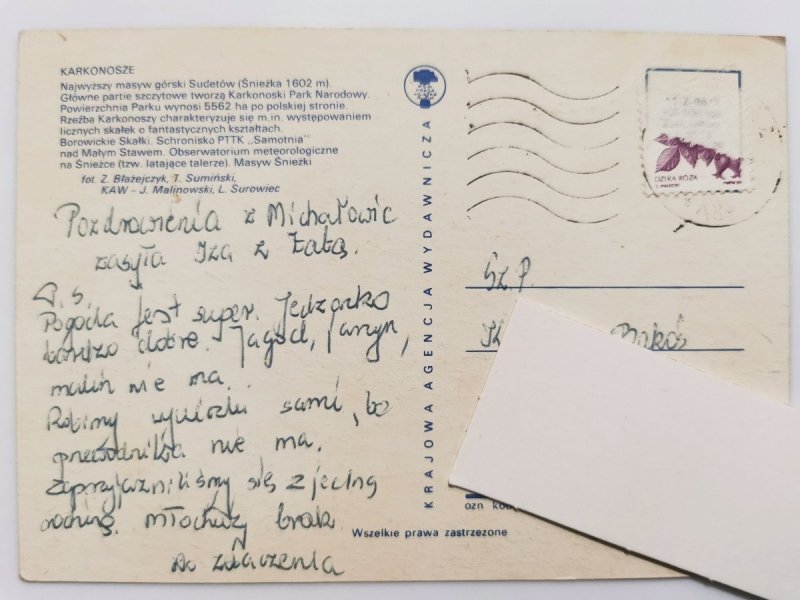 KARKONOSZE
Najwyższy masyw górski Sudetów (Śnieżka 1602 m).
Główne partie szczytowe tworzą Karkonoski Park Narodowy.
Powierzchnia Parku wynosi 5562 ha po polskiej stronie.
Rzeźba Karkonoszy charakteryzuje się m.in. występowaniem
licznych skałek o fantastycznych kształtach.
Borowickie Skałki. Schronisko PTTK „Samotnia"
nad Małym Stawem. Obserwatorium meteorologiczne
na Śnieżce (tzw. latające talerze). Masyw Śnieżki
fot. Z. Błażejczyk, T. Sumiński,
KAW – J. Malinowski, L. Surowiec
Pozdrowienia z Michałowic
zasyła Iza z Łatą.
P.S.
Pogoda jest super. Jedzonko
bardzo dobre. Jagód,
malin nie ma.
Robimy sami, bo
przewodnika nie ma.
Zaprzyjaźniliśmy się z jedną
rodziną. młodzieży brak
do zobaczenia
KRAJOWA AGENCJA WYDAWNICZA
DZIKA RÓŻA
Sz. P.
ozn
Wszelkie prawa zastrzeżone